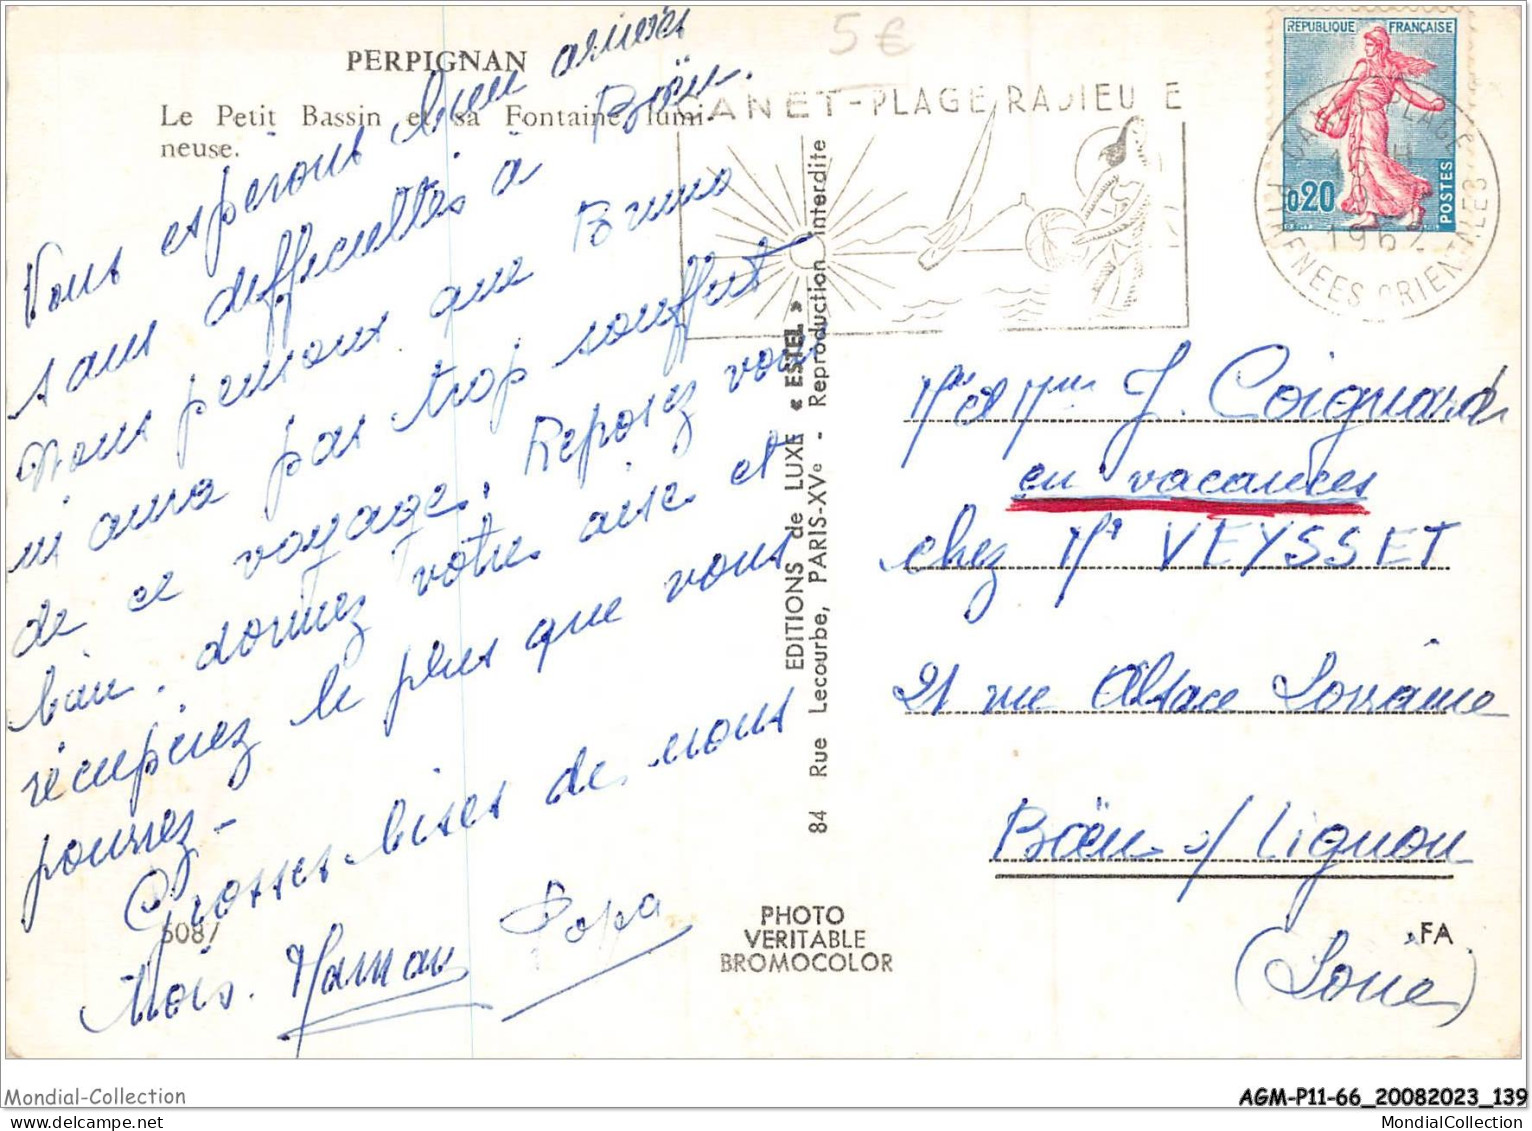 5€
PERPIGNAN
Le Petit Bassin et sa Fontaine lumi-
neuse.
CANET-PLAGE RADIEUSE
REPUBLIQUE FRANÇAISE
0,20
POSTES
CANET PLAGE
PYRENEES ORIENTALES
Vous espérons bien arrivés
sans difficultés à Boën.
Nous pensons que Bruno
n'aura pas trop souffert
de ce voyage. Reposez vous
bien. dormez votre aise et
récupérez le plus que vous
pourrez -
Grosses bises de nous
trois. Maman Papa
5087
EDITIONS de LUXE « ESTEL »
84 Rue Lecourbe, PARIS-XVe - Reproduction interdite
PHOTO
VERITABLE
BROMOCOLOR
Mr et Mme J. Coignard
en vacances
chez Mr VEYSSET
21 rue Alsace Lorraine
Boën s/ Lignon
FA
(Loire)
Mondial-Collection
AGM-P11-66_20082023_139
MondialCollection